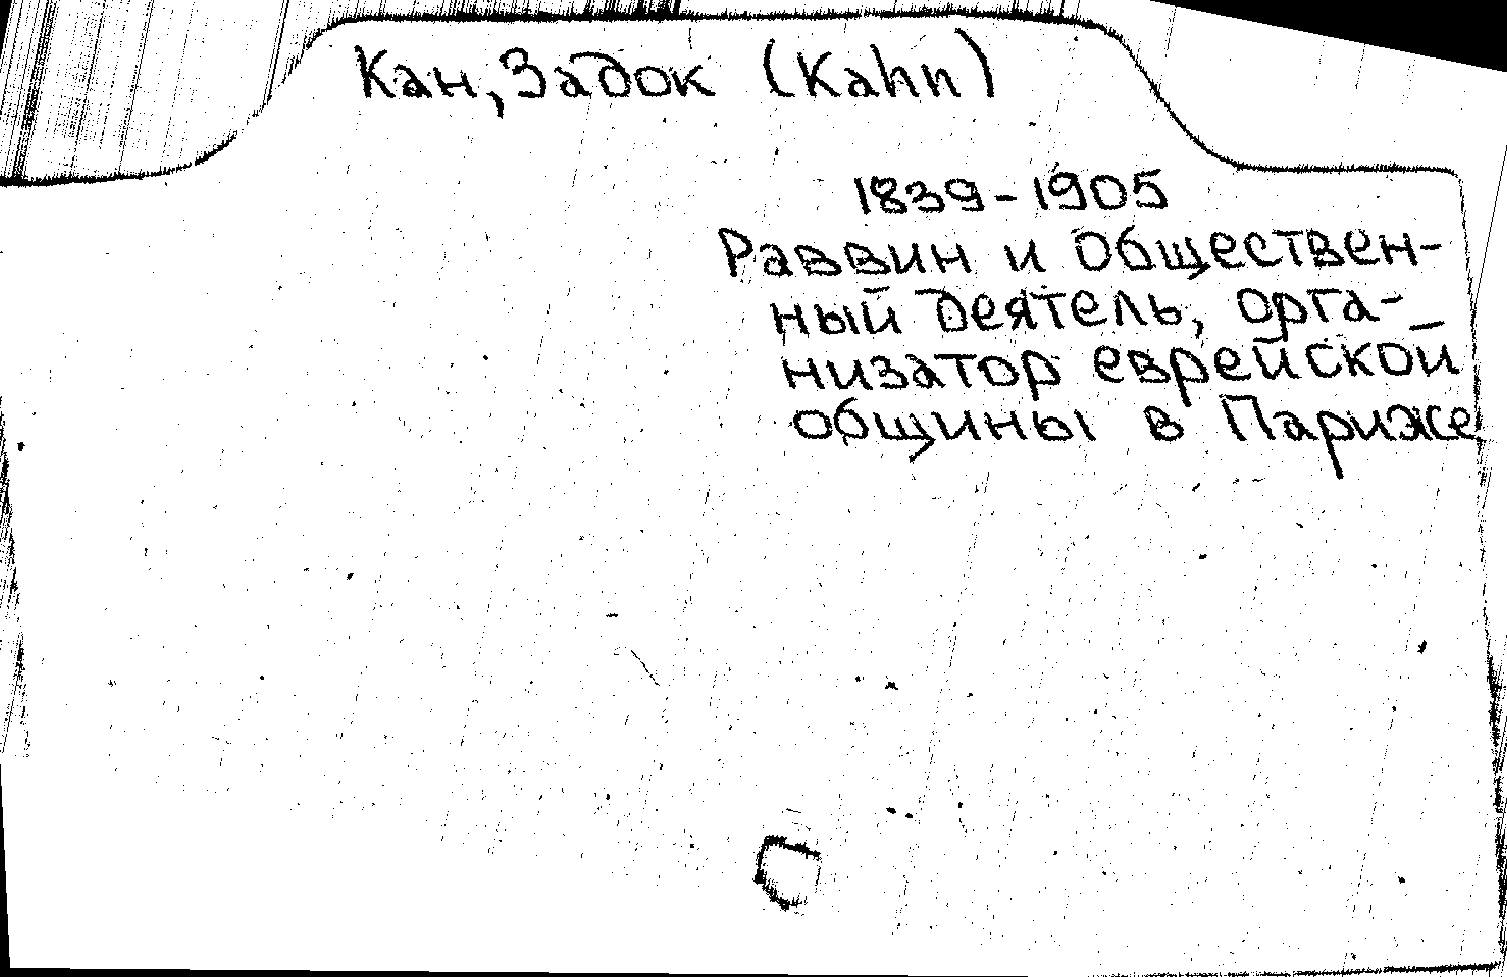 Кан, Задок (Kahn)
1839-1905
Раввин и обществен-
ный деятель, орга-
низатор еврейской
общины в Париже